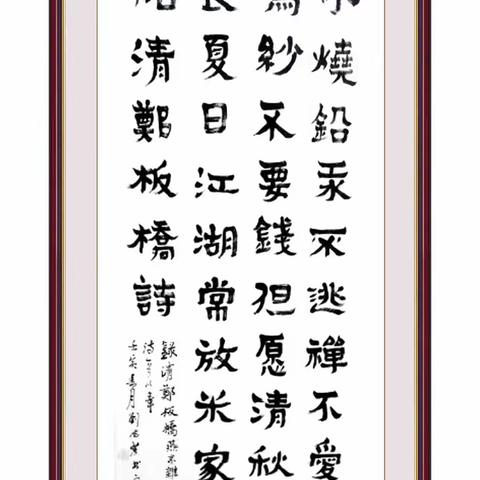 不燒鉛汞不逃禪不愛
烏紗不要錢但愿清秋
長夏日江湖常放米家
船清鄭板橋詩
錄清鄭板橋燕京雜
詩
壬寅春月劉